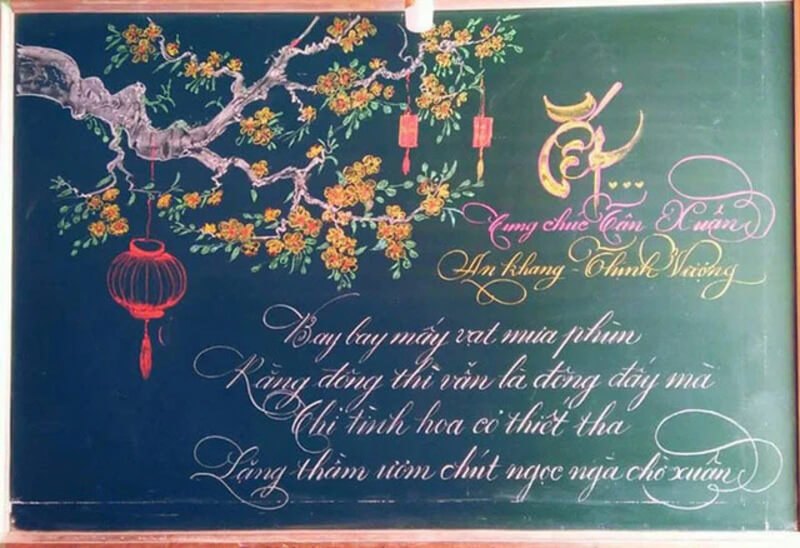 Tết...
Cung chúc Tân Xuân
An khang - Thịnh Vượng
Bay bay mấy vạt mưa phùn
Rằng đông thì vẫn là đông đấy mà
Chi tình hoa cỏ thiết tha
Lặng thầm ươm chút ngọc ngà chờ xuân